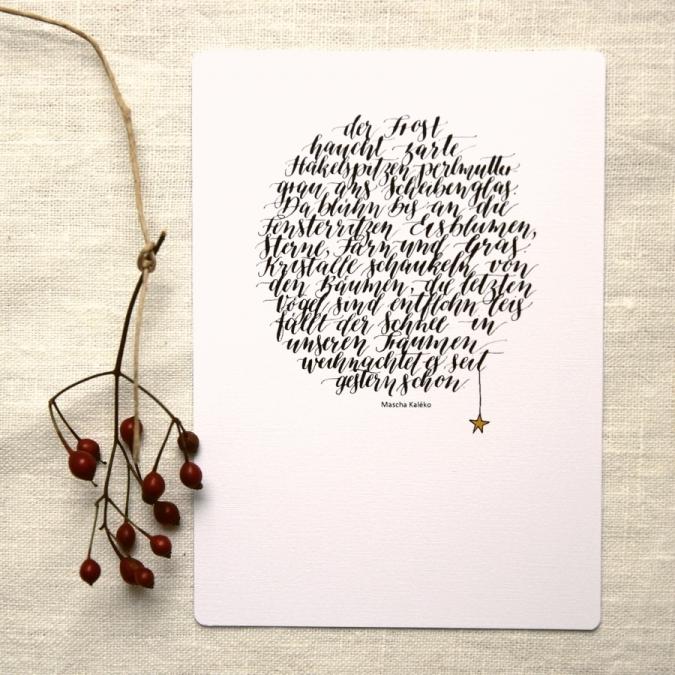 der Frost
haucht zarte
Häkelspitzen perlmutter
grau ans Scheibenglas.
Da blühn bis an die
Fensterritzen Eisblumen,
Sterne, Farn und Gras.
Kristalle schaukeln von
den Bäumen, die letzten
Vögel sind entflohn leis
fällt der Schnee in
unseren Träumen
weihnachtet es seit
gestern schon
Mascha Kaléko